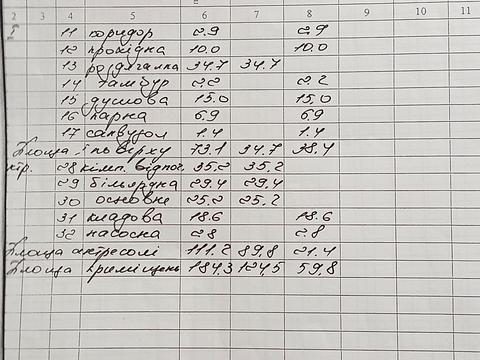 2 3 4 5 6 7 8 9 10 11
І 11 коридор 2.9 2.9
12 прохідна 10.0 10.0
13 роздягалка 34.7 34.7
14 тамбур 2.2 2.2
15 душова 15.0 15.0
16 парна 6.9 6.9
17 санвузол 1.4 1.4
Площа І поверху 73.1 34.7 38.4
28 кімн. відпоч. 35.2 35,2
29 більярдна 29.4 29.4
30 основне 25.2 25.2
31 кладова 18.6 18.6
32 насосна 2.8 2.8
Площа антресолі 111.2 89,8 21.4
Площа приміщень 184,3 124,5 59,8